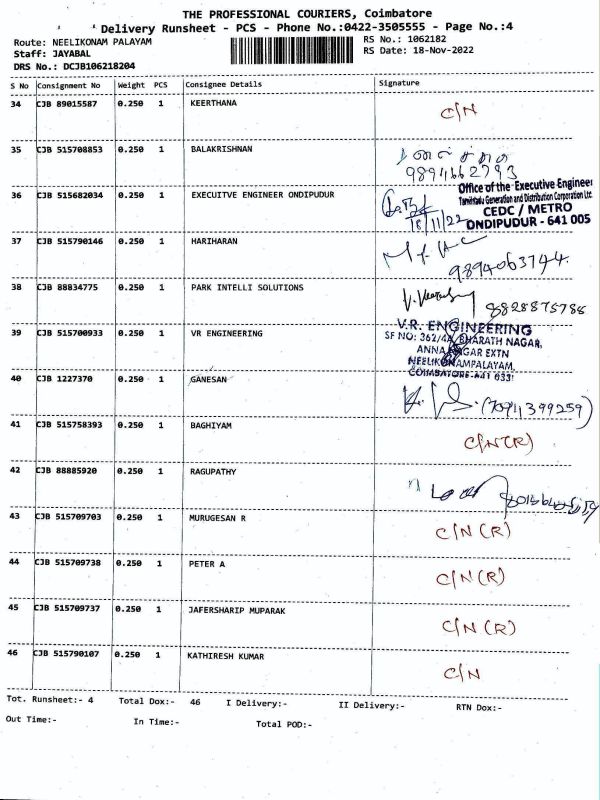 THE PROFESSIONAL COURIERS, Coimbatore
Delivery Runsheet - PCS - Phone No.:0422-3505555 - Page No.:4
Route: NEELIKONAM PALAYAM
RS No.: 1062182
Staff: JAYABAL
RS Date: 18-Nov-2022
DRS No.: DCJB106218204
S No Consignment No Weight PCS Consignee Details Signature
34 CJB 89015587 0.250 1 KEERTHANA C/N
35 CJB 515708853 0.250 1 BALAKRISHNAN
9894662793
36 CJB 515682034 0.250 1 EXECUITVE ENGINEER ONDIPUDUR
Office of the Executive Engineer
Tamilnadu Generation and Distribution Corporation Ltd.
CEDC / METRO
ONDIPUDUR - 641 005
18/11/22
37 CJB 515790146 0.250 1 HARIHARAN
9894063744.
38 CJB 88834775 0.250 1 PARK INTELLI SOLUTIONS
8828875788
39 CJB 515700933 0.250 1 VR ENGINEERING
V.R. ENGINEERING
SF NO: 362/4A, BHARATH NAGAR,
ANNA NAGAR EXTN
NEELIKONAMPALAYAM,
COIMBATORE-641 033
40 CJB 1227370 0.250 1 GANESAN
(7091399259)
41 CJB 515758393 0.250 1 BAGHIYAM C/N (R)
42 CJB 88885920 0.250 1 RAGUPATHY
43 CJB 515709703 0.250 1 MURUGESAN R C/N (R)
44 CJB 515709738 0.250 1 PETER A C/N (R)
45 CJB 515709737 0.250 1 JAFERSHARIP MUPARAK C/N (R)
46 CJB 515790107 0.250 1 KATHIRESH KUMAR C/N
Tot. Runsheet:- 4 Total Dox:- 46 I Delivery:- II Delivery:- RTN Dox:-
Out Time:- In Time:- Total POD:-